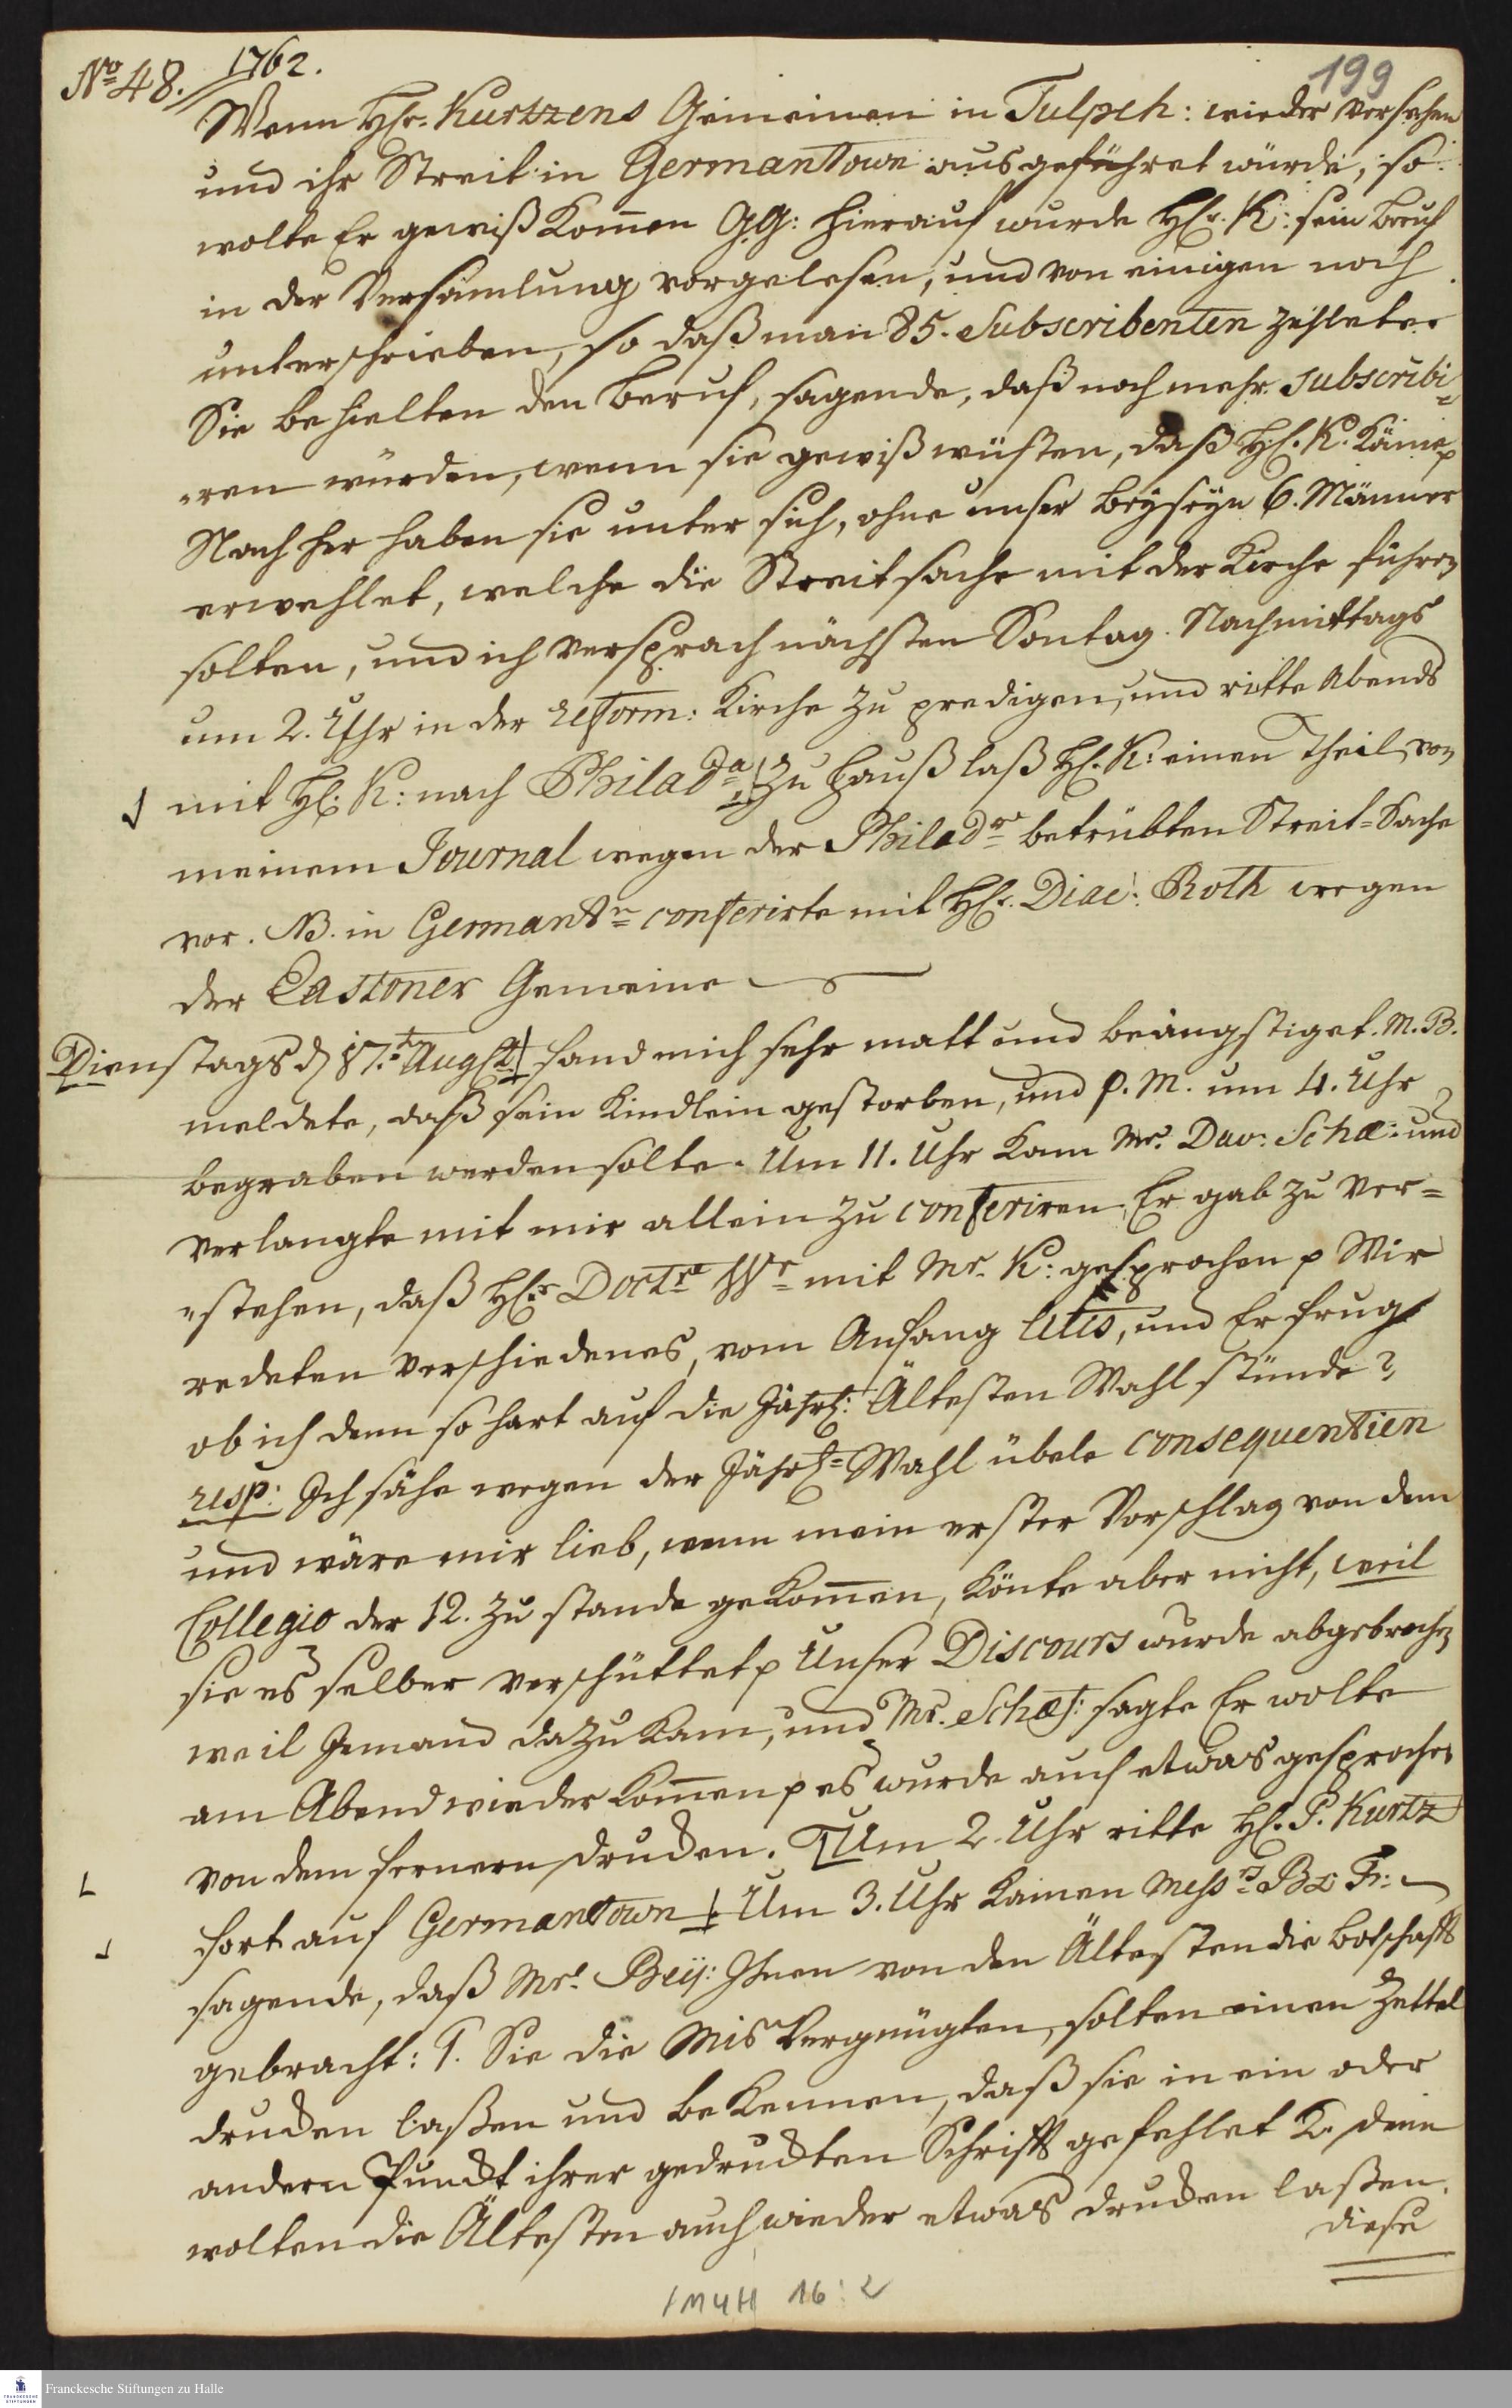 No 48. 1762.
199
Wenn HE. Kurtzens Gemeinen in Tulpeh: wieder versehen
und ihr Streit in Germantown ausgeführet würde, so
wolte Er gewiß Kom̅en GG: hierauf wurde HE. K: sein Beruf
in der Versamlung vorgelesen, und von einigen noch
unterschrieben, so daß man 85. Subscribenten zehlete.
Sie behielten den Beruf, sagende, daß noch mehr subscribi=
=ren würden, wenn sie gewiß wüsten, daß HE. K. käme p
Nachher haben sie unter sich, ohne unser Beyseyn 6. Männer
erwehlet, welche die Streitsache mit der Kirche führen
solten, und ich versprach nächsten Sontag Nachmittags
um 2. Uhr in der reform: Kirche zu predigen, und ritte Abends
mit HE. K: nach Philada. Zu Hauß laß HE. K: einen Theil von
meinem Journal wegen der Philadr betrübten Streit=Sache
vor. NB. in Germantn conferirte mit HE. Diac: Roth wegen
der Eastoner Gemeine
Dienstags d 17.t Augst. fand mich sehr matt und beängstiget. M. B.
meldete, daß sein Kindlein gestorben, und p. M. um 4. Uhr
begraben werden solte. Um 11. Uhr kam Mr. Dav: Schæ: und
verlangte mit mir allein zu conferiren. Er gab zu ver=
=stehen, daß HE. Doctr Wr mit Mr. K: gesprochen p Wir
redeten verschiedenes, vom Anfang litis, und Er frug
ob ich denn so hart auf die Jährl: Ältesten Wahl stünde?
resp: Ich sähe wegen der Jährl= Wahl übele consequentien
und wäre mir lieb, wenn mein erster Vorschlag von dem
Collegio der 12. zu stande gekom̅en, könte aber nicht, weil
sie es selber verschüttet p Unser Discours wurde abgebrochen
weil Jemand dazu kam, und Mr. Schæf: sagte Er wolte
am Abend wieder kom̅en p es wurde auch etwas gesprochen
von dem fernern drucken. Um 2 Uhr ritte HE. P. Kurtz
fort auf Germantown Um 3. Uhr kamen Messrs B & Fr:
sagende, daß Mr. Bey: Ihnen von den Ältesten die Botschafft
gebracht: 1. Sie die Misvergnügten, solten einen Zettel
drucken laßen und bekennen, daß sie in ein oder
andern Punckt ihrer gedruckten Schrifft gefehlet 2. denn
wolten die Ältesten auch wieder etwas drucken laßen.
diese
1 M 4 H 16 : 2
Franckesche Stiftungen zu Halle